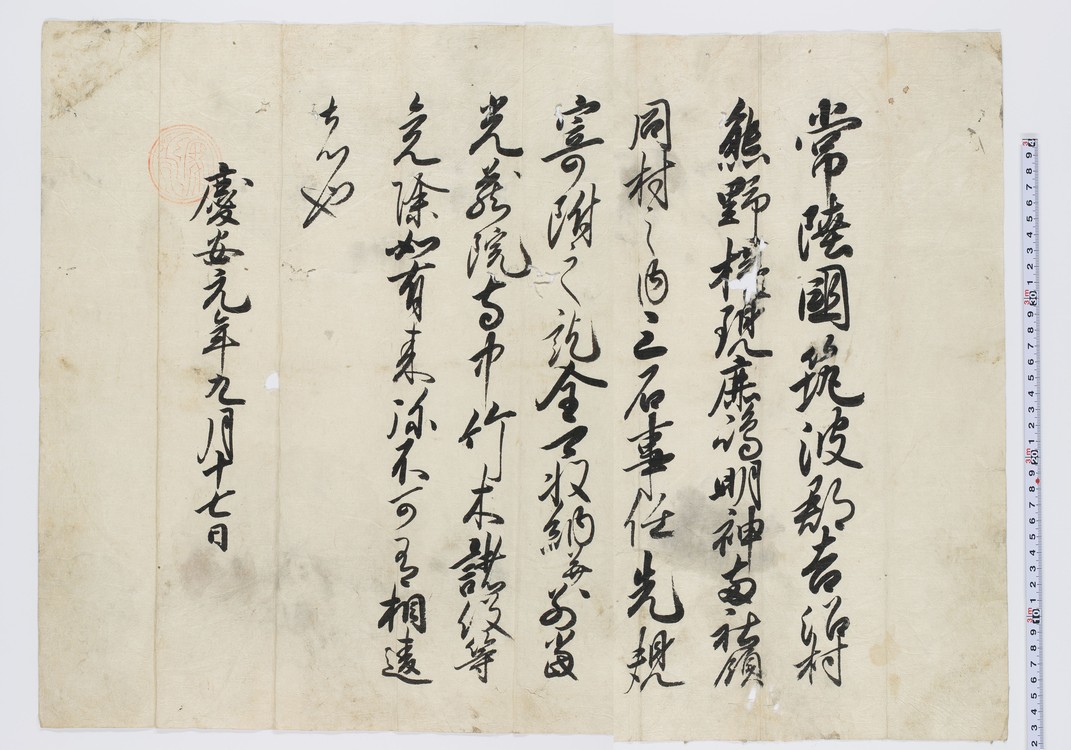 常陸國筑波郡吉沼村
熊野権現鹿嶋明神両社領
同村之内三石事任先規
寄附之訖全可収納并別當
光蔵院寺中竹木諸役等
免除如有来弥不可有相違
者也
慶安元年九月十七日